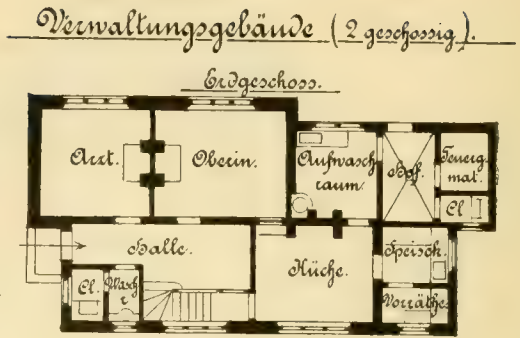 Verwaltungsgebäude (2 geschossig).
Erdgeschoss.
Arzt.
Oberin.
Aufwasch
raum.
Hof.
Feuerg.
mat.
Cl
Halle.
Küche.
Speisek.
Cl.
Wasch
r
Vorräthe.